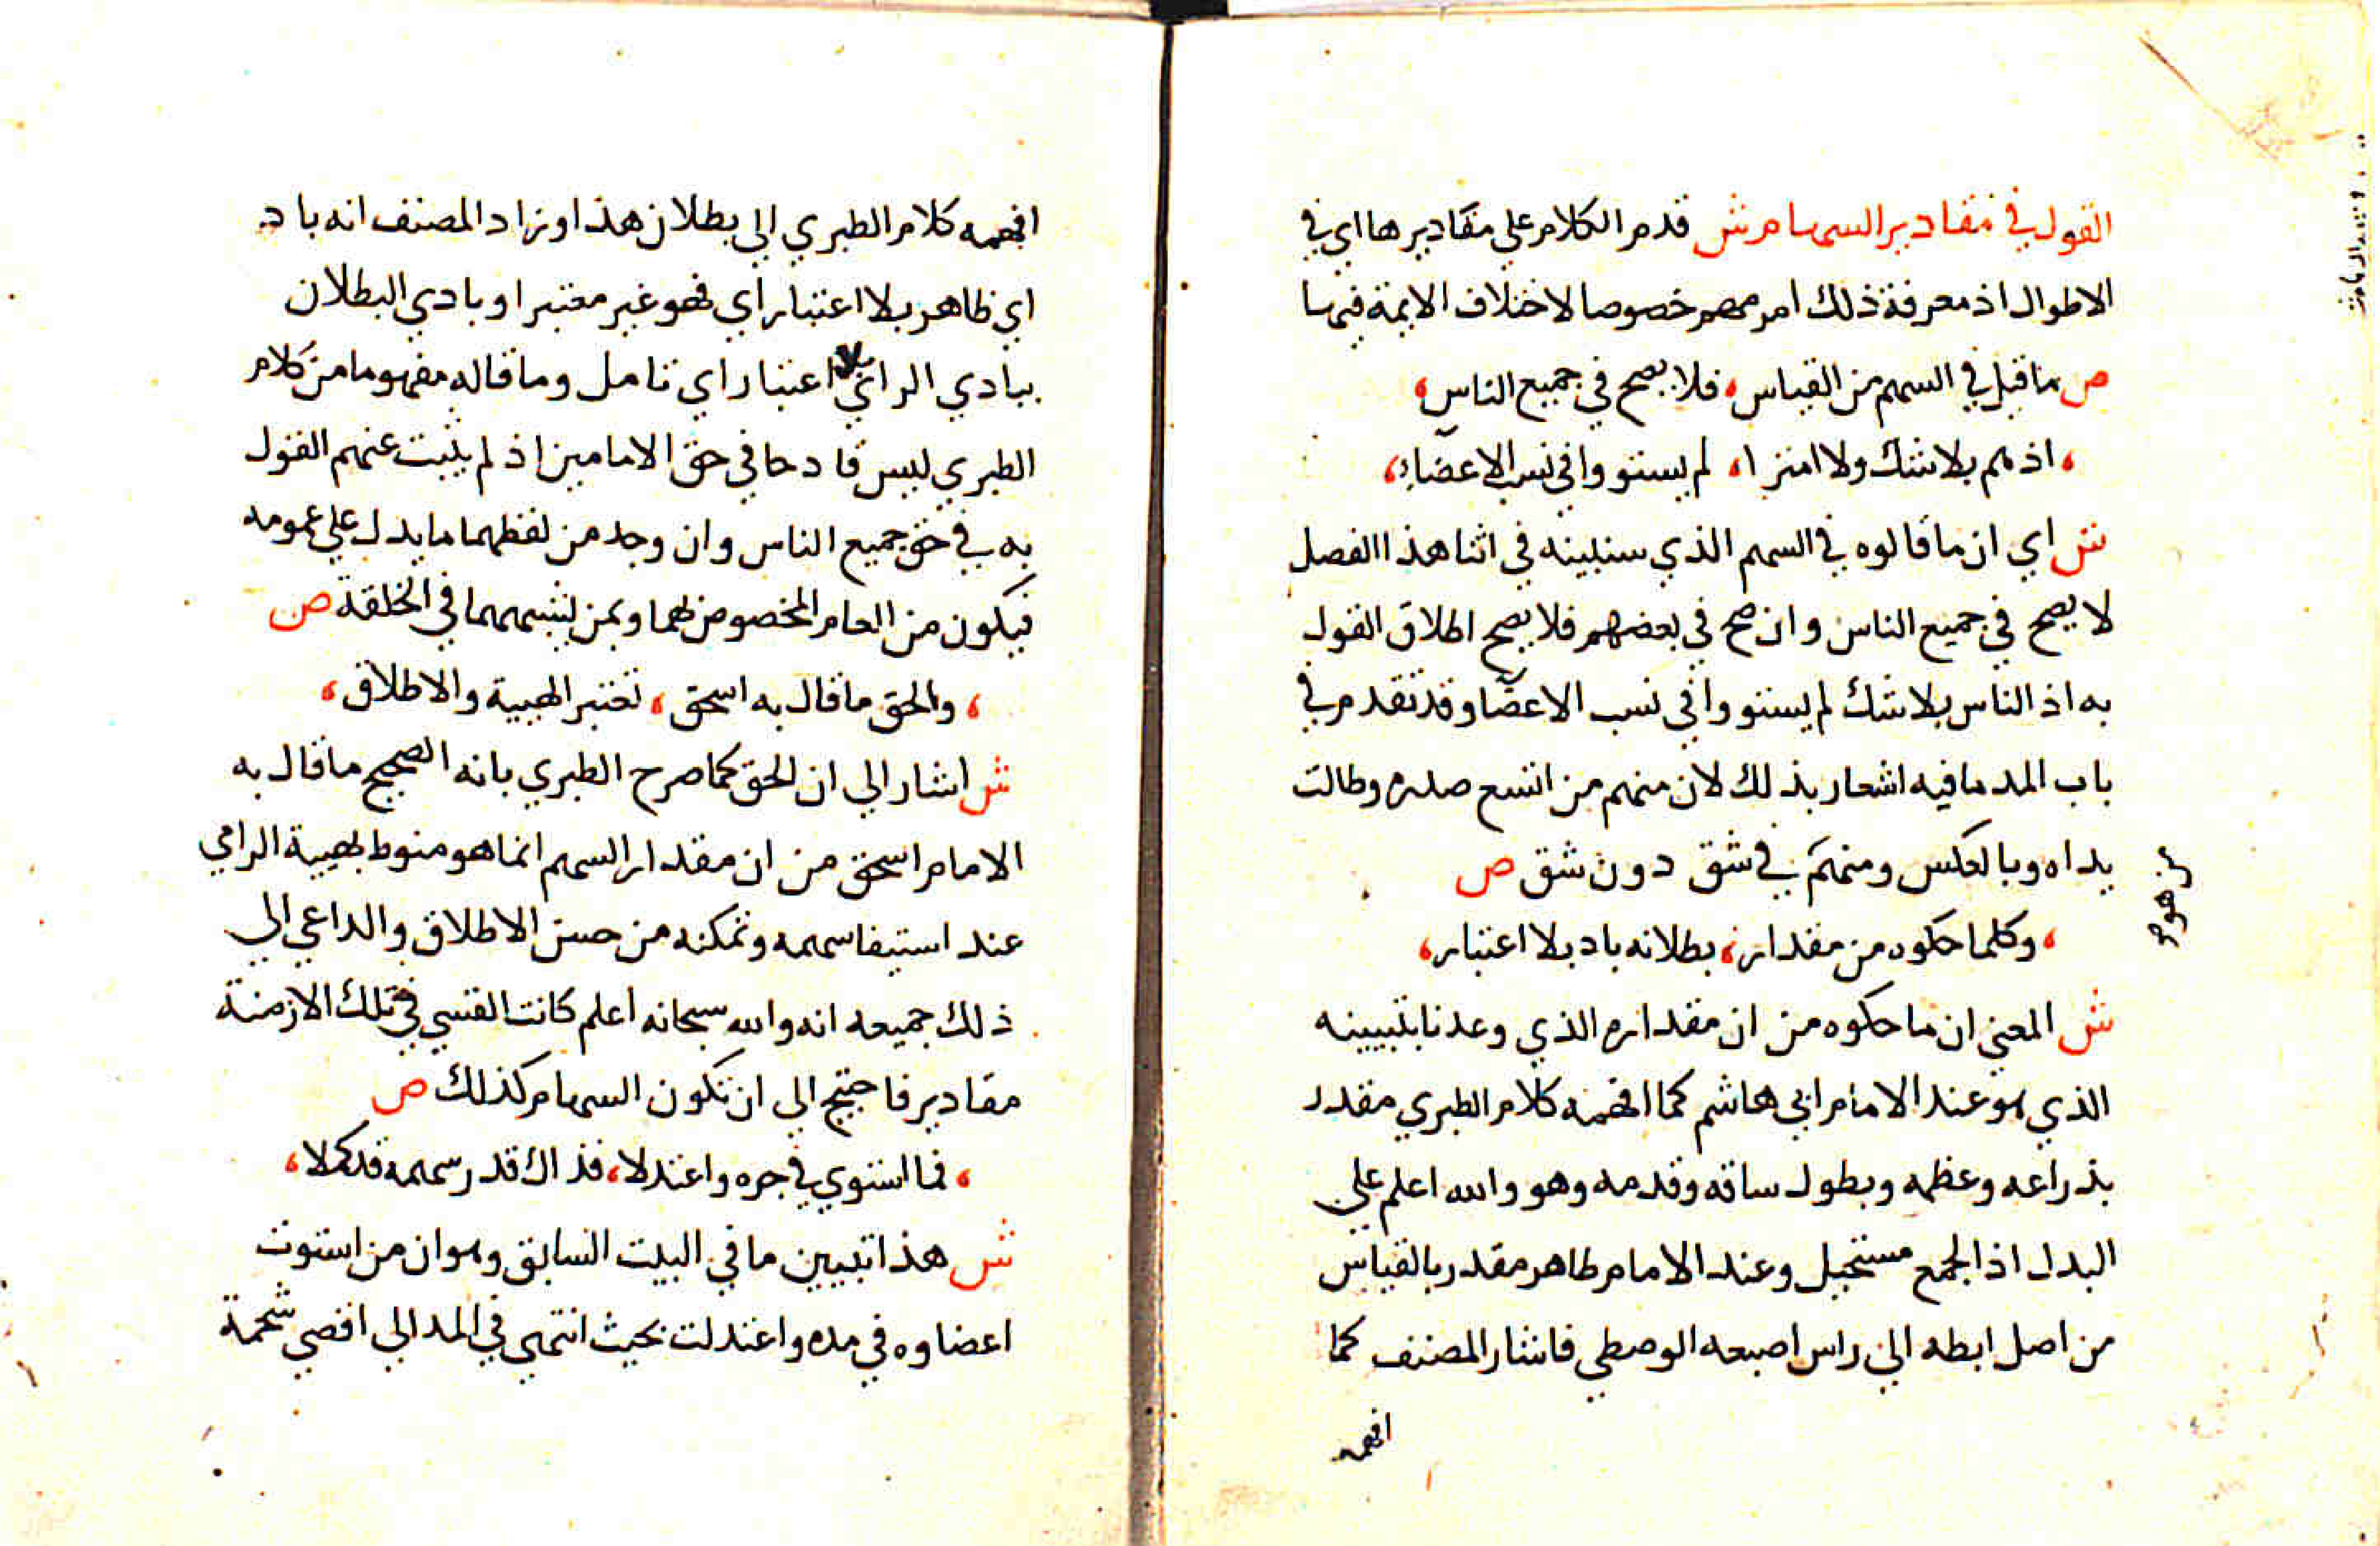 القول في مقادير السهام ش قدم الكلام علي مقاديرها اي في
الاطوال اذ معرفة ذلك امر مهم خصوصا لاختلاف الايمة فيها
ص ما قيل في السهم من القياس، فلا يصح في جميع الناس،
، اذ هم بلا شك ولا امترا، لم يستووا في نسب الاعضاء،
ش اي ان ما قالوه في السهم الذي سنبينه في اثنا هذا الفصل
لا يصح في جميع الناس وان صح في بعضهم فلا يصح اطلاق القول
به اذ الناس بلا شك لم يستووا في نسب الاعضا وقد تقدم في
باب المد ما فيه اشعار بذلك لان منهم من اتسع صدره وطالت
يداه وبالعكس ومنهم في شق دون شق ص
من هو
، وكلما حكوه من مقدار، بطلانه باد بلا اعتبار،
ش المعني ان ما حكوه من ان مقداره الذي وعدنا بتبيينه
الذي هو عند الامام ابي هاشم كما افهمه كلام الطبري مقدر
بذراعه وعظمه وبطول ساقه وقدمه وهو والله اعلم علي
البدل اذ الجمع مستحيل وعند الامام طاهر مقدر بالقياس
من اصل ابطه الي راس اصبعه الوصطي فاشار المصنف كما
افهمه
افهمه كلام الطبري الي بطلان هذا وزاد المصنف انه باد
اي ظاهر بلا اعتبار اي فهو غير معتبر او بادي البطلان
ببادي الراي بلا اعتبار اي تامل وما قاله مفهوما من كلام
الطبري ليس قادحا في حق الامامين اذ لم يثبت عنهم القول
به في حق جميع الناس وان وجد من لفظهما ما يدل علي عمومه
فيكون من العام المخصوص بهما وبمن يشبههما في الخلقة ص
، والحق ما قال به اسحق، تعتبر الهيية والاطلاق،
ش اشار الي ان الحق كما صرح الطبري بانه الصحيح ما قال به
الامام اسحق من ان مقدار السهم انما هو منوط بهيية الرامي
عند استيفا سهمه وتمكنه من حسن الاطلاق والداعي الي
ذلك جميعه انه والله سبحانه اعلم كانت القسي في تلك الازمنة
مقادير فاحتيج الي ان تكون السهام كذلك ص
، فما استوي في جره واعتدلا، فذاك قدر سهمه قد كملا،
ش هذا تبيين ما في البيت السابق وهو ان من استوت
اعضاوه في مده واعتدلت بحيث انتهي في المد الي اقصي شحمة